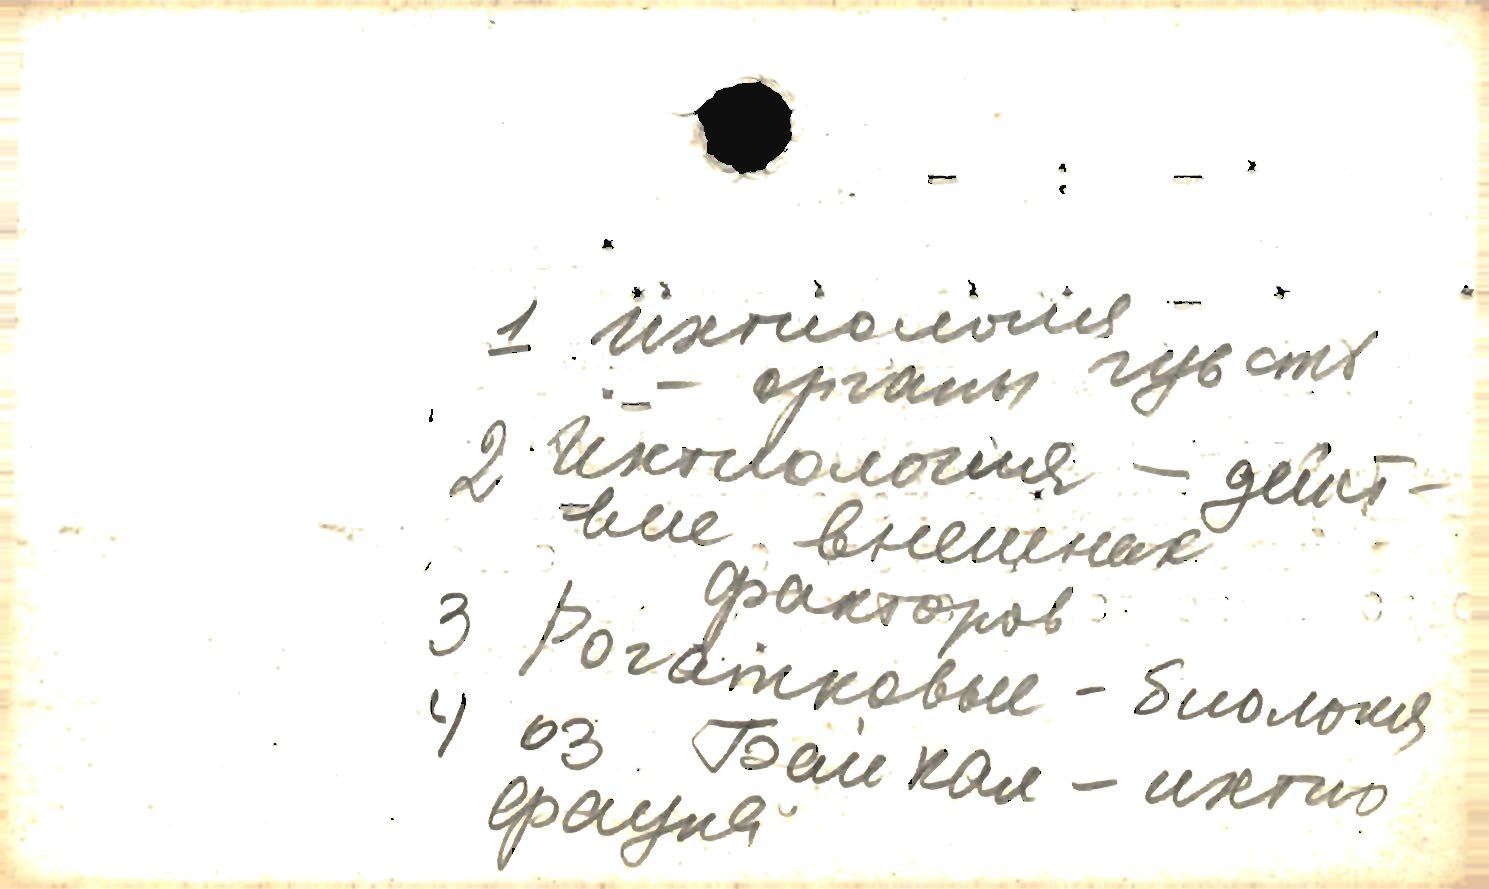 1 Ихтиология
- органы чувств
2 Ихтиология - дейст-
-вие внешних
факторов
3 Рогатковые - биология
4 оз Байкал - ихтио
фауна